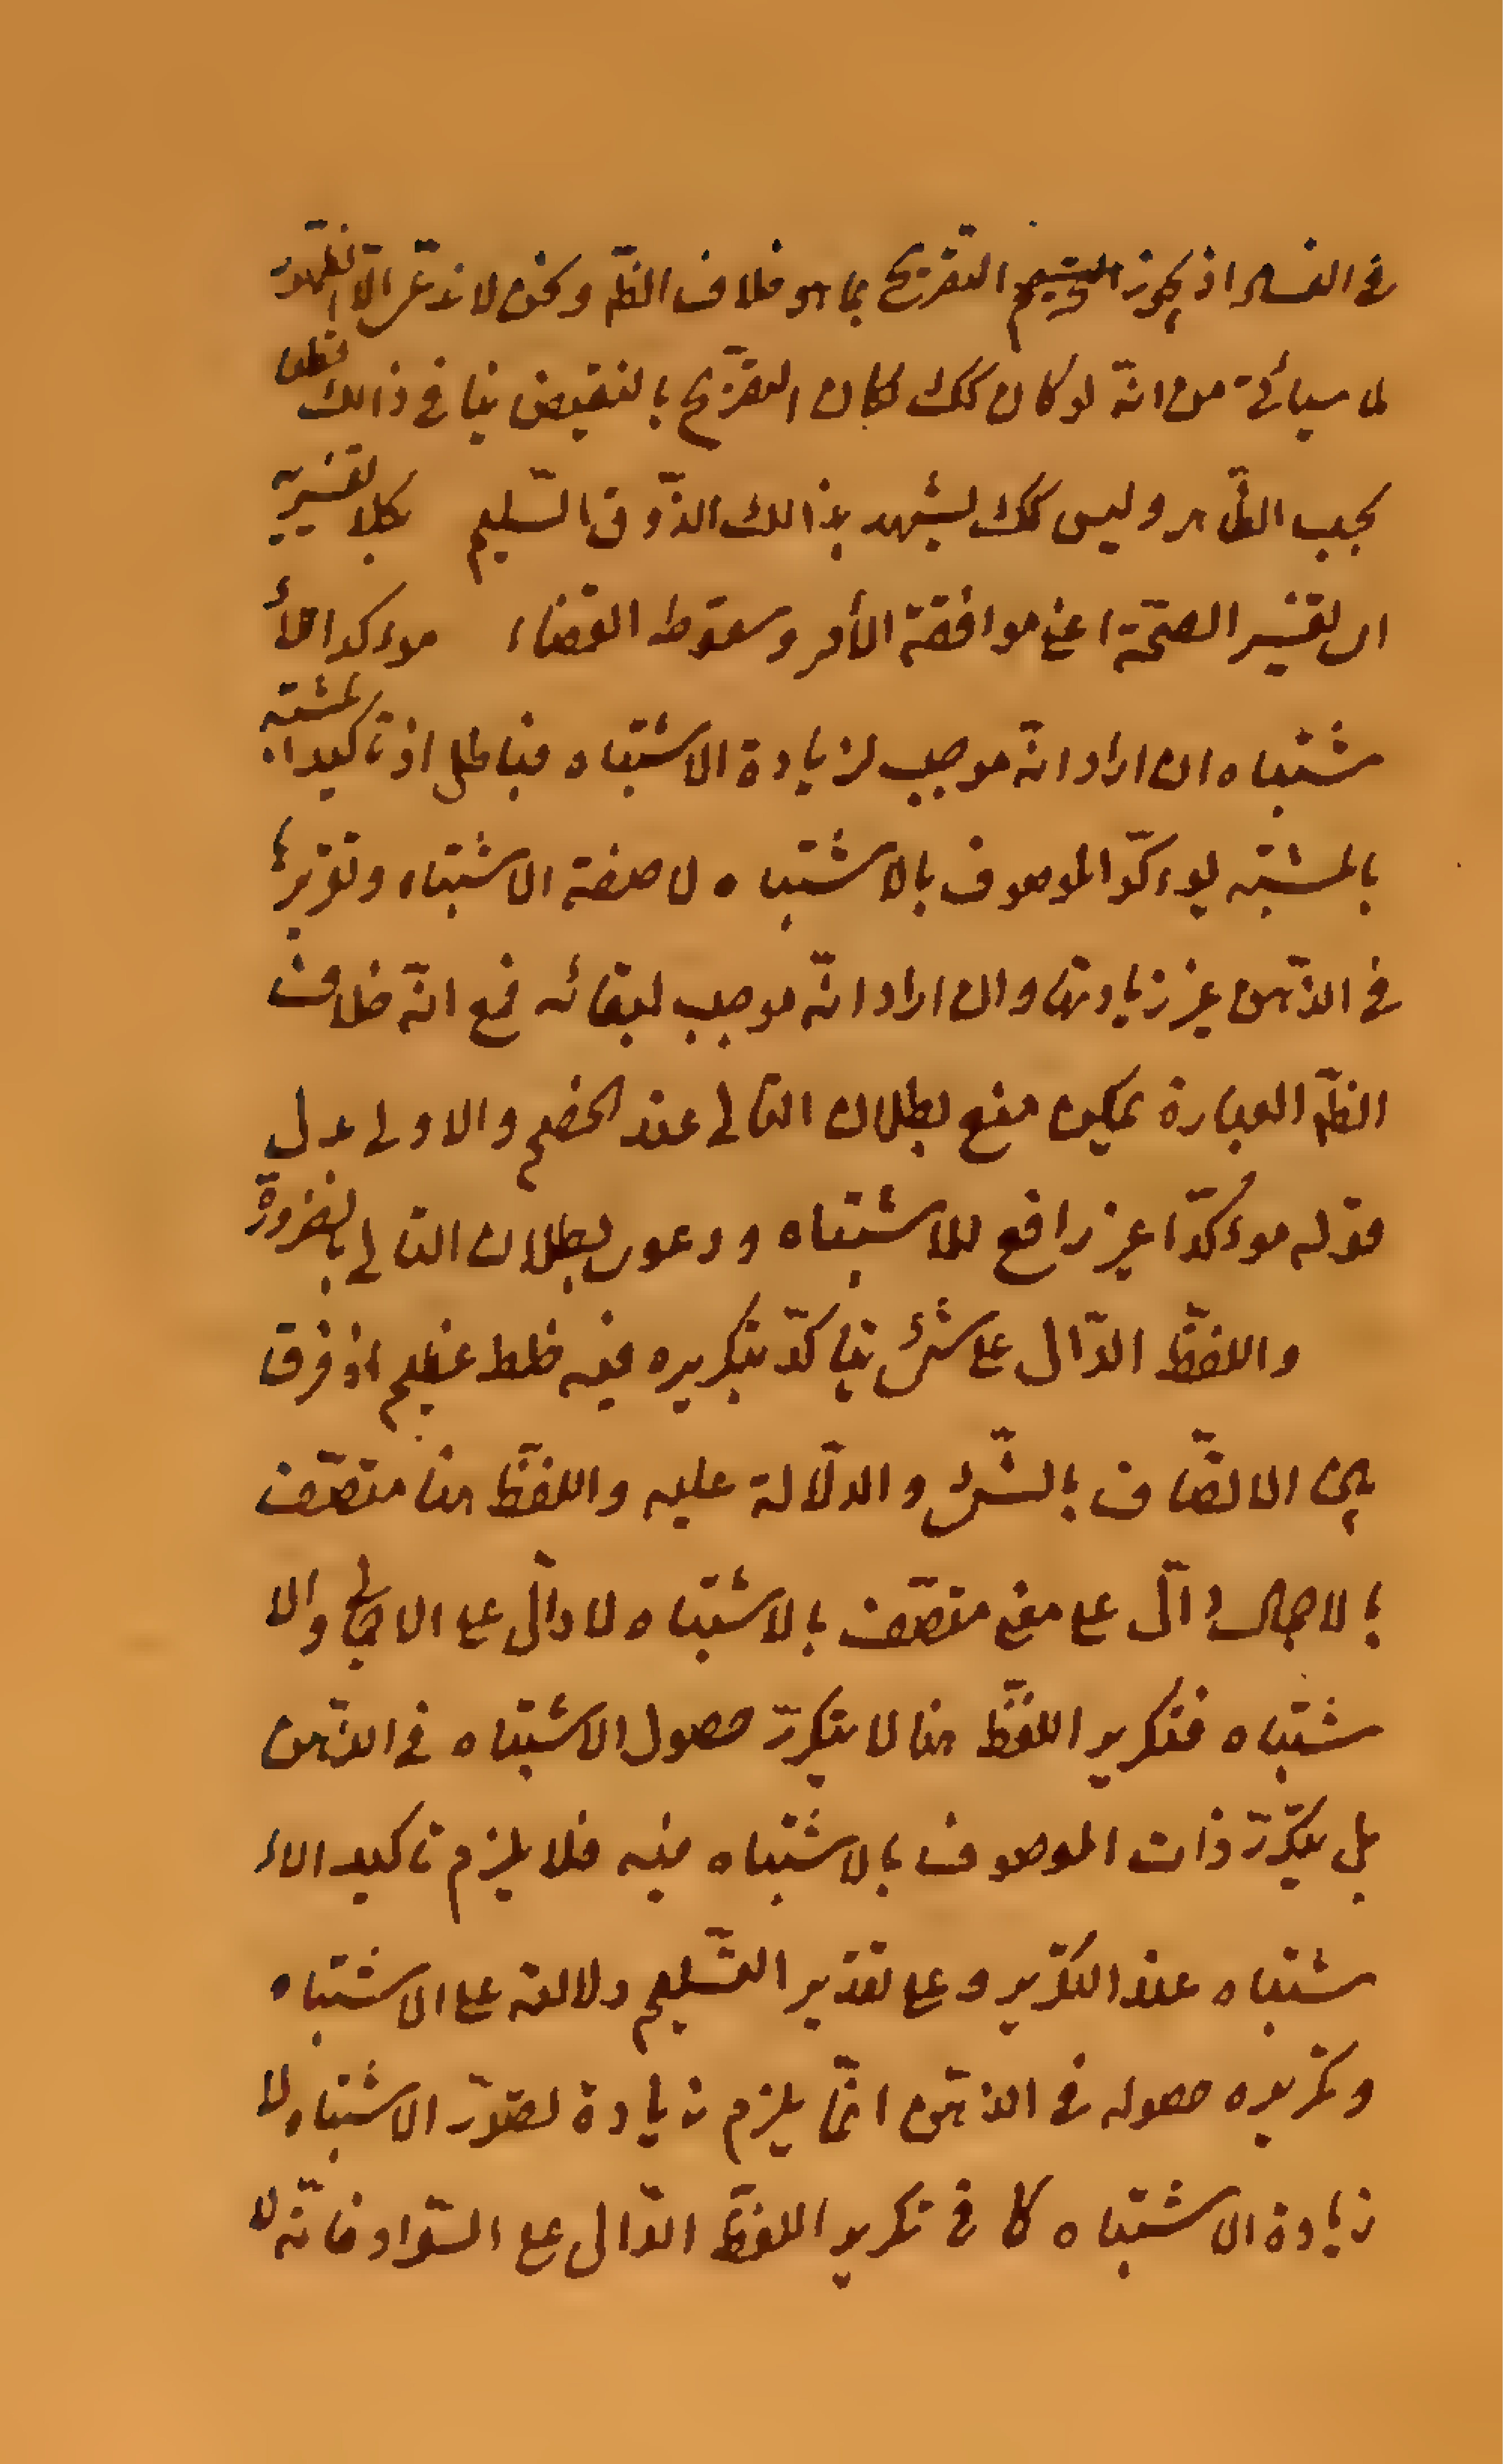 في الفساد اذ يجوز التصريح بما هو خلاف الظّ ونحن لا ندّعى الّا الظّهور
لما سيأتى من انّه لو كان كك لكان التصريح بالنقيض ينافى ذالك قطعا
بحب الظّاهر وليس كك لشهد بذالك الذّوق السّليم بكلا تفسيريه
اى تفسير الصحّة اعنى موافقة الأمر وسقوط القضاء موءكدا للأ
شتباه ان اراد انّه موجب لزيادة الاشتباه فباطل اذ تاكيد المشتبه
بالمشتبه يوءكّد الموصوف بالاشتباه لا صفة الاشتباه وتقريرها
في الذّهن غير زيادتها وان اراد انّه موجب لبقائه فمع انّه خلاف
الظّ العبارة يمكن منع بطلان التالى عند الخصم والاولى بدل
قوله موءكدّا غير رافع للاشتباه ودعوى بطلان التالى بالضرورة
واللفظ الدّال على شىء يتاكدّ بتكريره فيه خلط عظيم اذ فرق
بين الاتصّاف بالشّىء والدلّالة عليه واللفظ هنا متصّف
بالاجمال دالّ على معنى متصّف بالاشتباه لا دالّ على الاجمال والا
شتباه فتكرير اللفظ هنا لا يتكررّ حصول الاشتباه في الذهن
بل يتكرّر ذات الموصوف بالاشتباه فيه فلا يلزم تاكيد الاء
شتباه عند التكرير وعلى تقدير التسّليم دلالته على الاشتباه
وتكريره حصوله في الذهن انمّا يلزم زيادة تصوّر الاشتباه لا
زيادة الاشتباه كما في تكرير اللفظ الدّال على السّواد فانّه لا